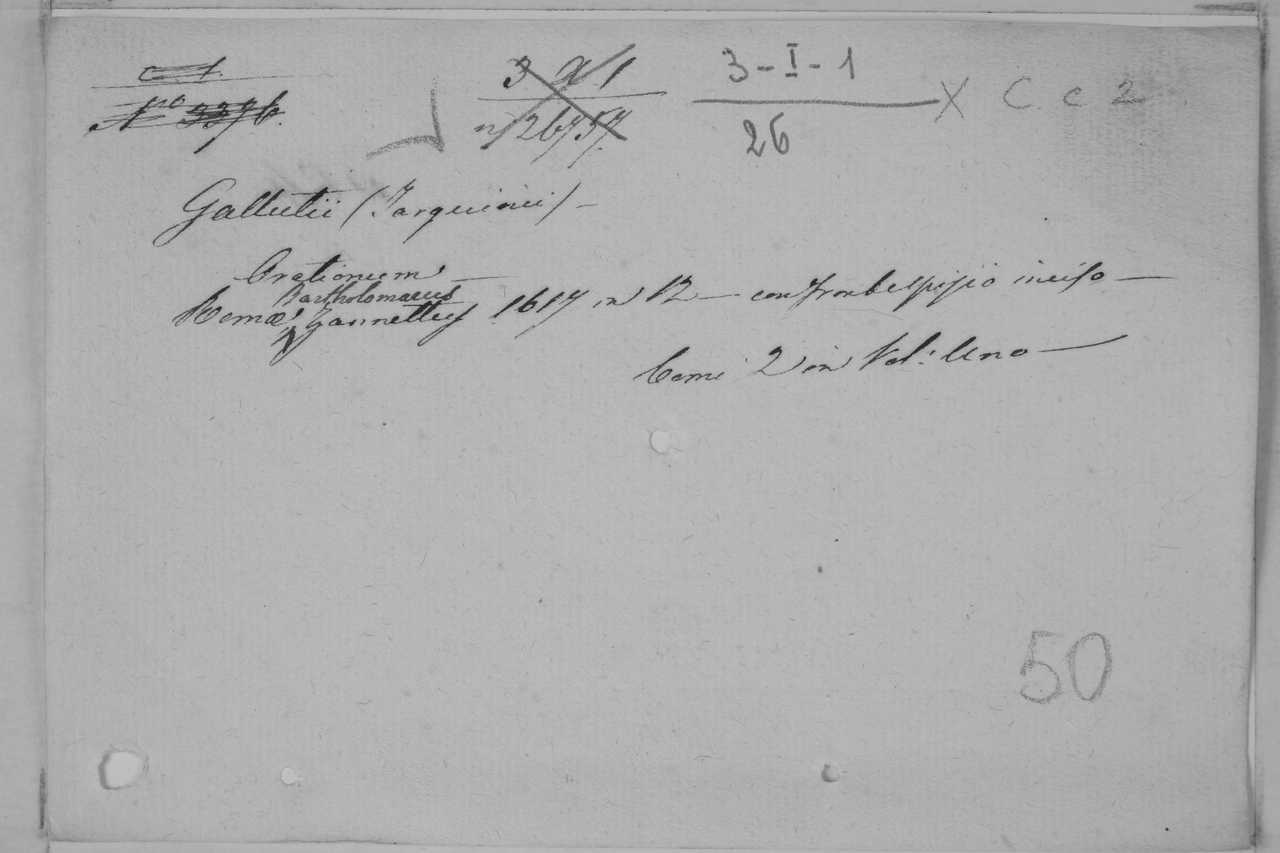 C 1.
N.ro 3376.
3 a 1
n; 26757.
3-I-1
26
X C. c 2
Gallutii (Tarquinii) -
Orationum -
Bartholomaeus
Romae, Zannettus 1617 in 12 - con frontespizio inciso -
Tomi 2 in Vol: Uno -
50